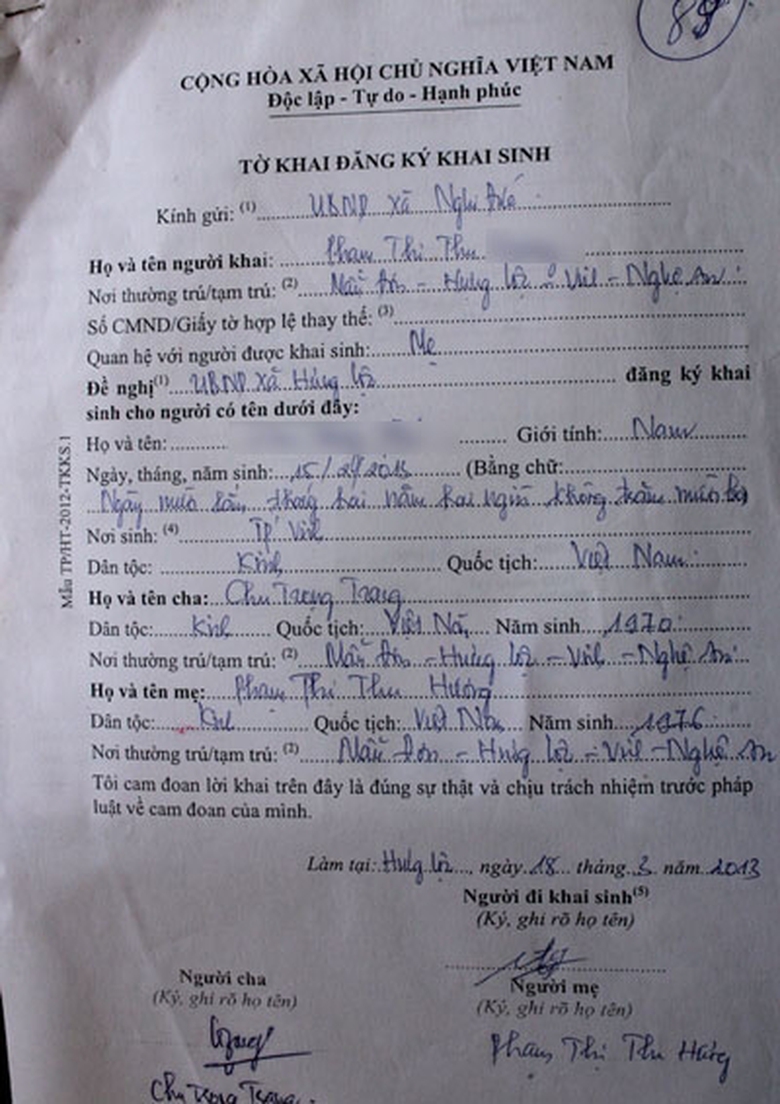 88
CỘNG HÒA XÃ HỘI CHỦ NGHĨA VIỆT NAM
Độc lập - Tự do - Hạnh phúc
TỜ KHAI ĐĂNG KÝ KHAI SINH
Kính gửi: (1) UBND xã Nghi
Họ và tên người khai: Phạm Thị Thu
Nơi thường trú/tạm trú: (2) Mẫu Đơn - Hưng Lộc - Vinh - Nghệ An
Số CMND/Giấy tờ hợp lệ thay thế: (3)
Quan hệ với người được khai sinh: Mẹ
Đề nghị (1) UBND xã Hưng Lộc đăng ký khai
sinh cho người có tên dưới đây:
Họ và tên: Giới tính: Nam
Ngày, tháng, năm sinh: 15/2/2013 (Bằng chữ:
Ngày mười lăm tháng hai năm hai nghìn không trăm mười ba)
Nơi sinh: (4) TP Vinh
Dân tộc: Kinh Quốc tịch: Việt Nam
Họ và tên cha: Chu Trọng Trang
Dân tộc: Kinh Quốc tịch: Việt Nam Năm sinh 1970
Nơi thường trú/tạm trú: (2) Mẫu Đơn - Hưng Lộc - Vinh - Nghệ An
Họ và tên mẹ: Phạm Thị Thu Hương
Dân tộc: Kinh Quốc tịch: Việt Nam Năm sinh 1976
Nơi thường trú/tạm trú: (2) Mẫu Đơn - Hưng Lộc - Vinh - Nghệ An
Tôi cam đoan lời khai trên đây là đúng sự thật và chịu trách nhiệm trước pháp
luật về cam đoan của mình.
Làm tại: Hưng Lộc, ngày 18 tháng 3 năm 2013
Người đi khai sinh (5)
(Ký, ghi rõ họ tên)
Người cha
(Ký, ghi rõ họ tên)
Người mẹ
(Ký, ghi rõ họ tên)
Phạm Thị Thu Hương
Chu Trọng Trang
Mẫu TP/HT-2012-TKKS.1